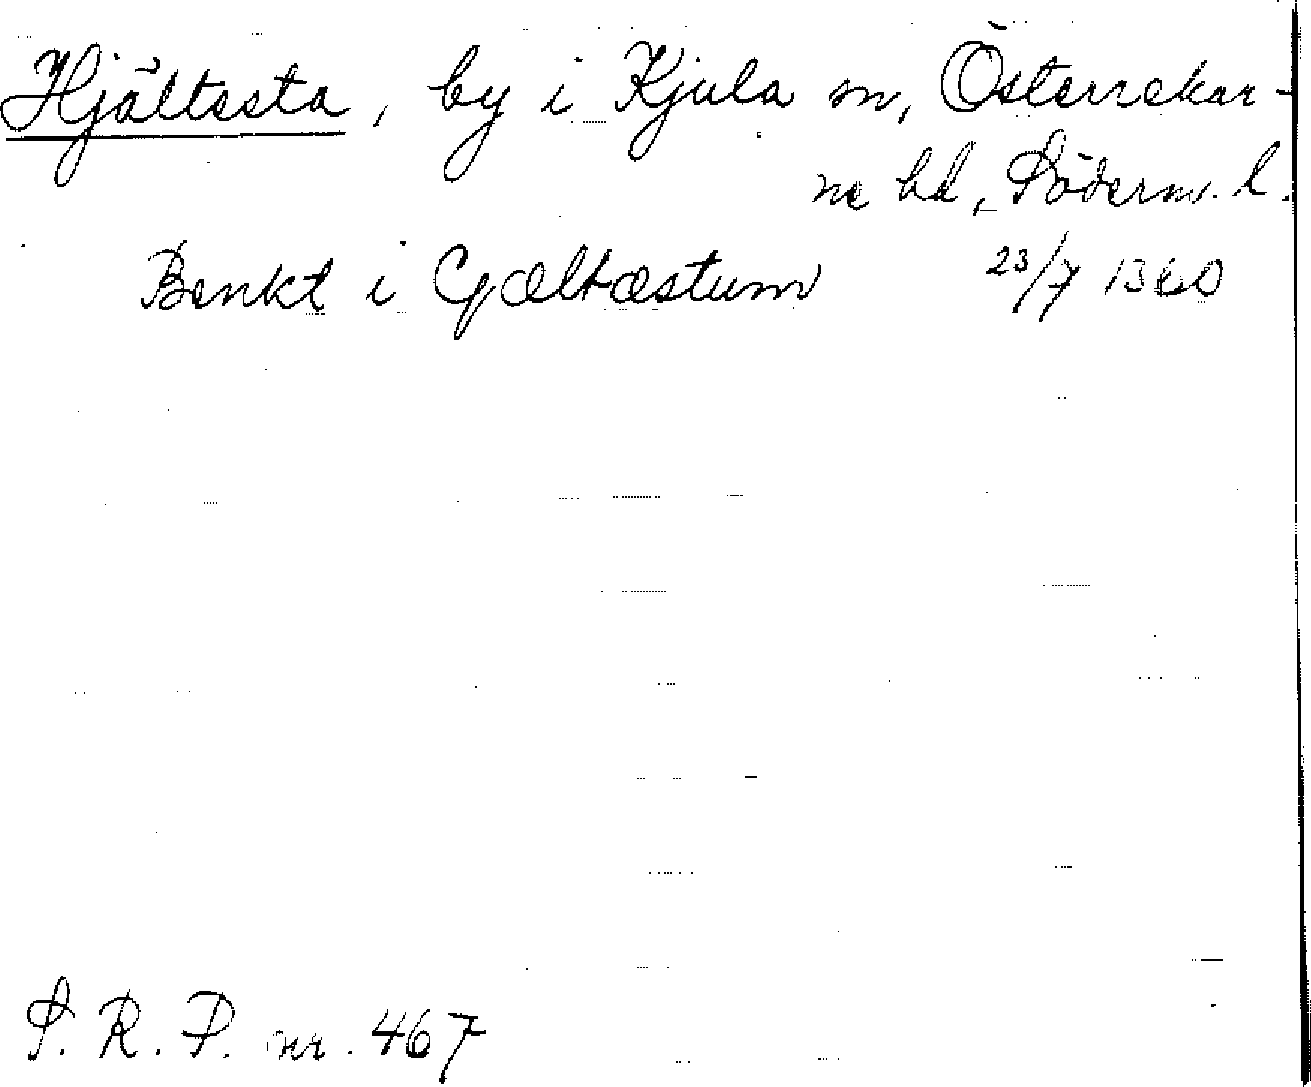 Hjältesta, by i Kjula sn, Österrekar-
ne hd, Söderm. l.
Benkt i Gæltæstum 23/7 1360
S. R. P. nr. 467